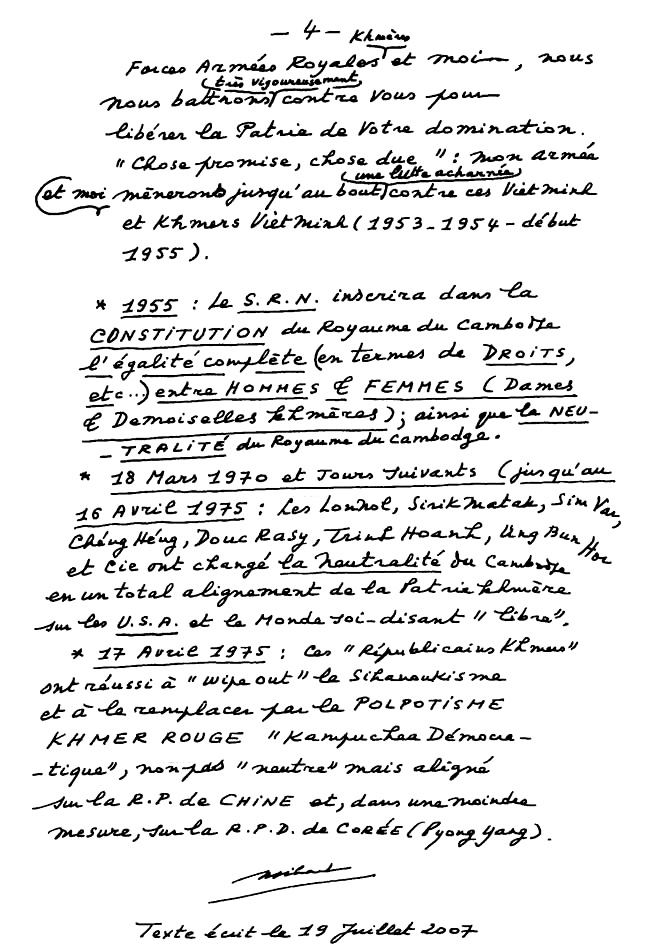 - 4 -
Forces Armées Royales Khmères et moi, nous
nous battrons très vigoureusement contre Vous pour
libérer la Patrie de Votre domination.
"Chose promise, chose due" : mon armée
et moi mènerons jusqu'au bout une lutte acharnée contre ces Viêt Minh
et Khmers Viêt Minh (1953-1954 - début
1955).
* 1955 : Le S.R.N. inscrira dans la
CONSTITUTION du Royaume du Cambodge
l'égalité complète (en termes de DROITS,
etc..) entre HOMMES & FEMMES (Dames
& Demoiselles khmères) ; ainsi que la NEU-
- TRALITÉ du Royaume du Cambodge.
* 18 Mars 1970 et Jours suivants (jusqu'au
16 Avril 1975 : Les Lonnol, Sirik Matak, Sim Var,
Chéng Héng, Douc Rasy, Trinh Hoanh, Ung Bun Hor
et Cie ont changé la neutralité du Cambodge
en un total alignement de la Patrie khmère
sur les U.S.A. et le Monde soi-disant "libre".
* 17 Avril 1975 : Ces "Républicains Khmers"
ont réussi à "wipe out" le Sihanoukisme
et à le remplacer par le POLPOTISME
KHMER ROUGE "Kampuchea Démocra-
- tique", non pas "neutre" mais aligné
sur la R.P. de CHINE et, dans une moindre
mesure, sur la R.P.D. de CORÉE (Pyong Yang).
Texte écrit le 19 Juillet 2007